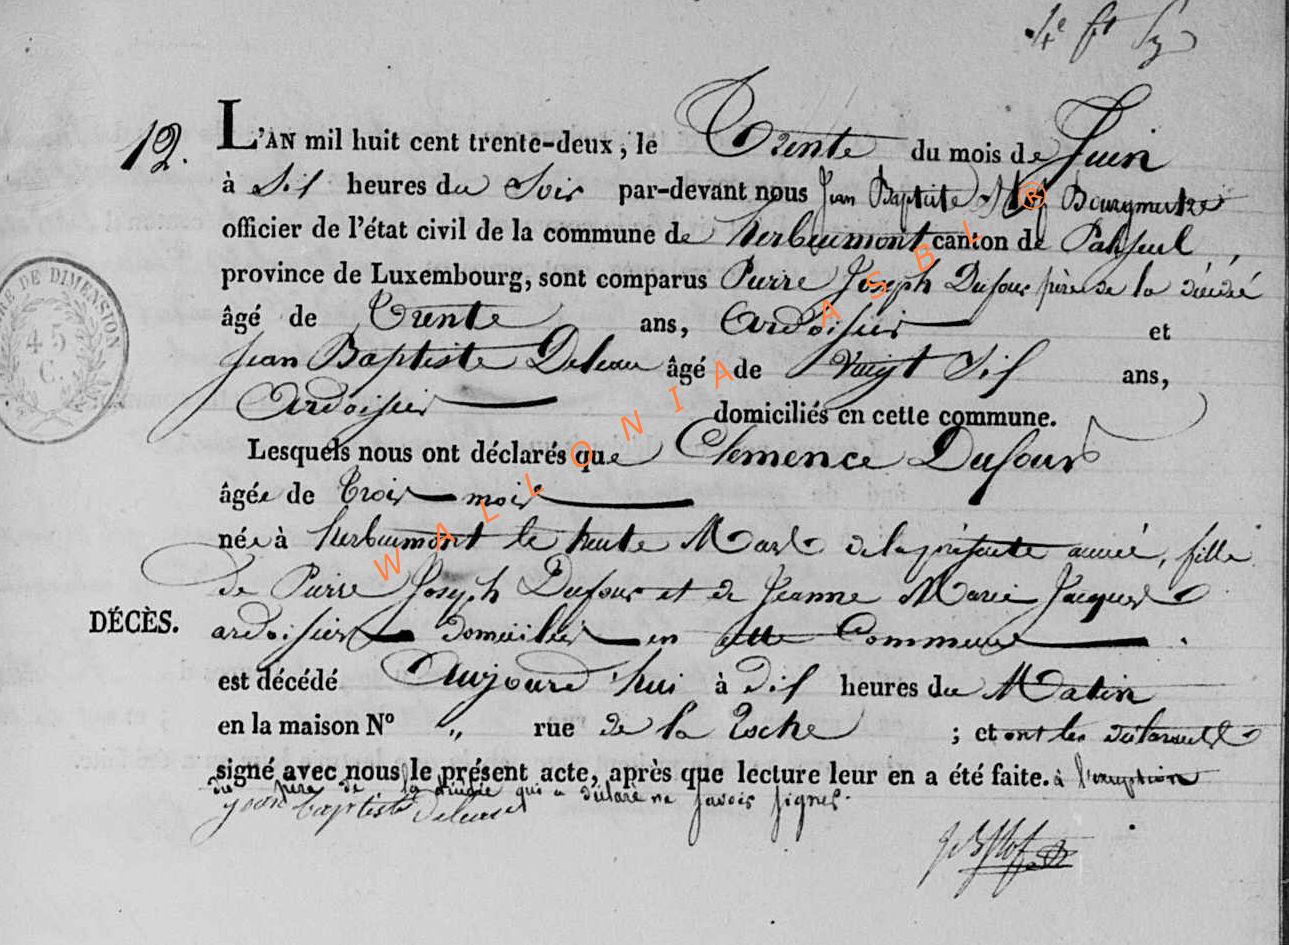 12.
L'AN mil huit cent trente-deux, le Trente du mois de Juin
à Six heures du Soir par-devant nous Jean Baptiste Bourgmestre
officier de l'état civil de la commune de herbeumont canton de Paliseul,
province de Luxembourg, sont comparus Pierre Joseph Dufour père de la décédé
âgé de Trente ans, Ardoisier et
Jean Baptiste Deleau âgé de Vingt Six ans,
Ardoisier domiciliés en cette commune.
Lesquels nous ont déclarés que Clemence Dufour
âgée de Trois mois
née à herbeumont le trente Mars de la présente année, fille
de Pierre Joseph Dufour et de Jeanne Marie Jacques
DÉCÈS.
ardoisier domiciliés en cette Commune.
est décédé Aujourd'hui à dix heures du Matin
en la maison N° " rue de la ; et ont les déclarants
signé avec nous le présent acte, après que lecture leur en a été faite. à l'exception
du père de la décédée qui a déclaré ne savoir signer.
jean baptiste
RE DE DIMENSION
45
C.
WALLONIA ASBL ®